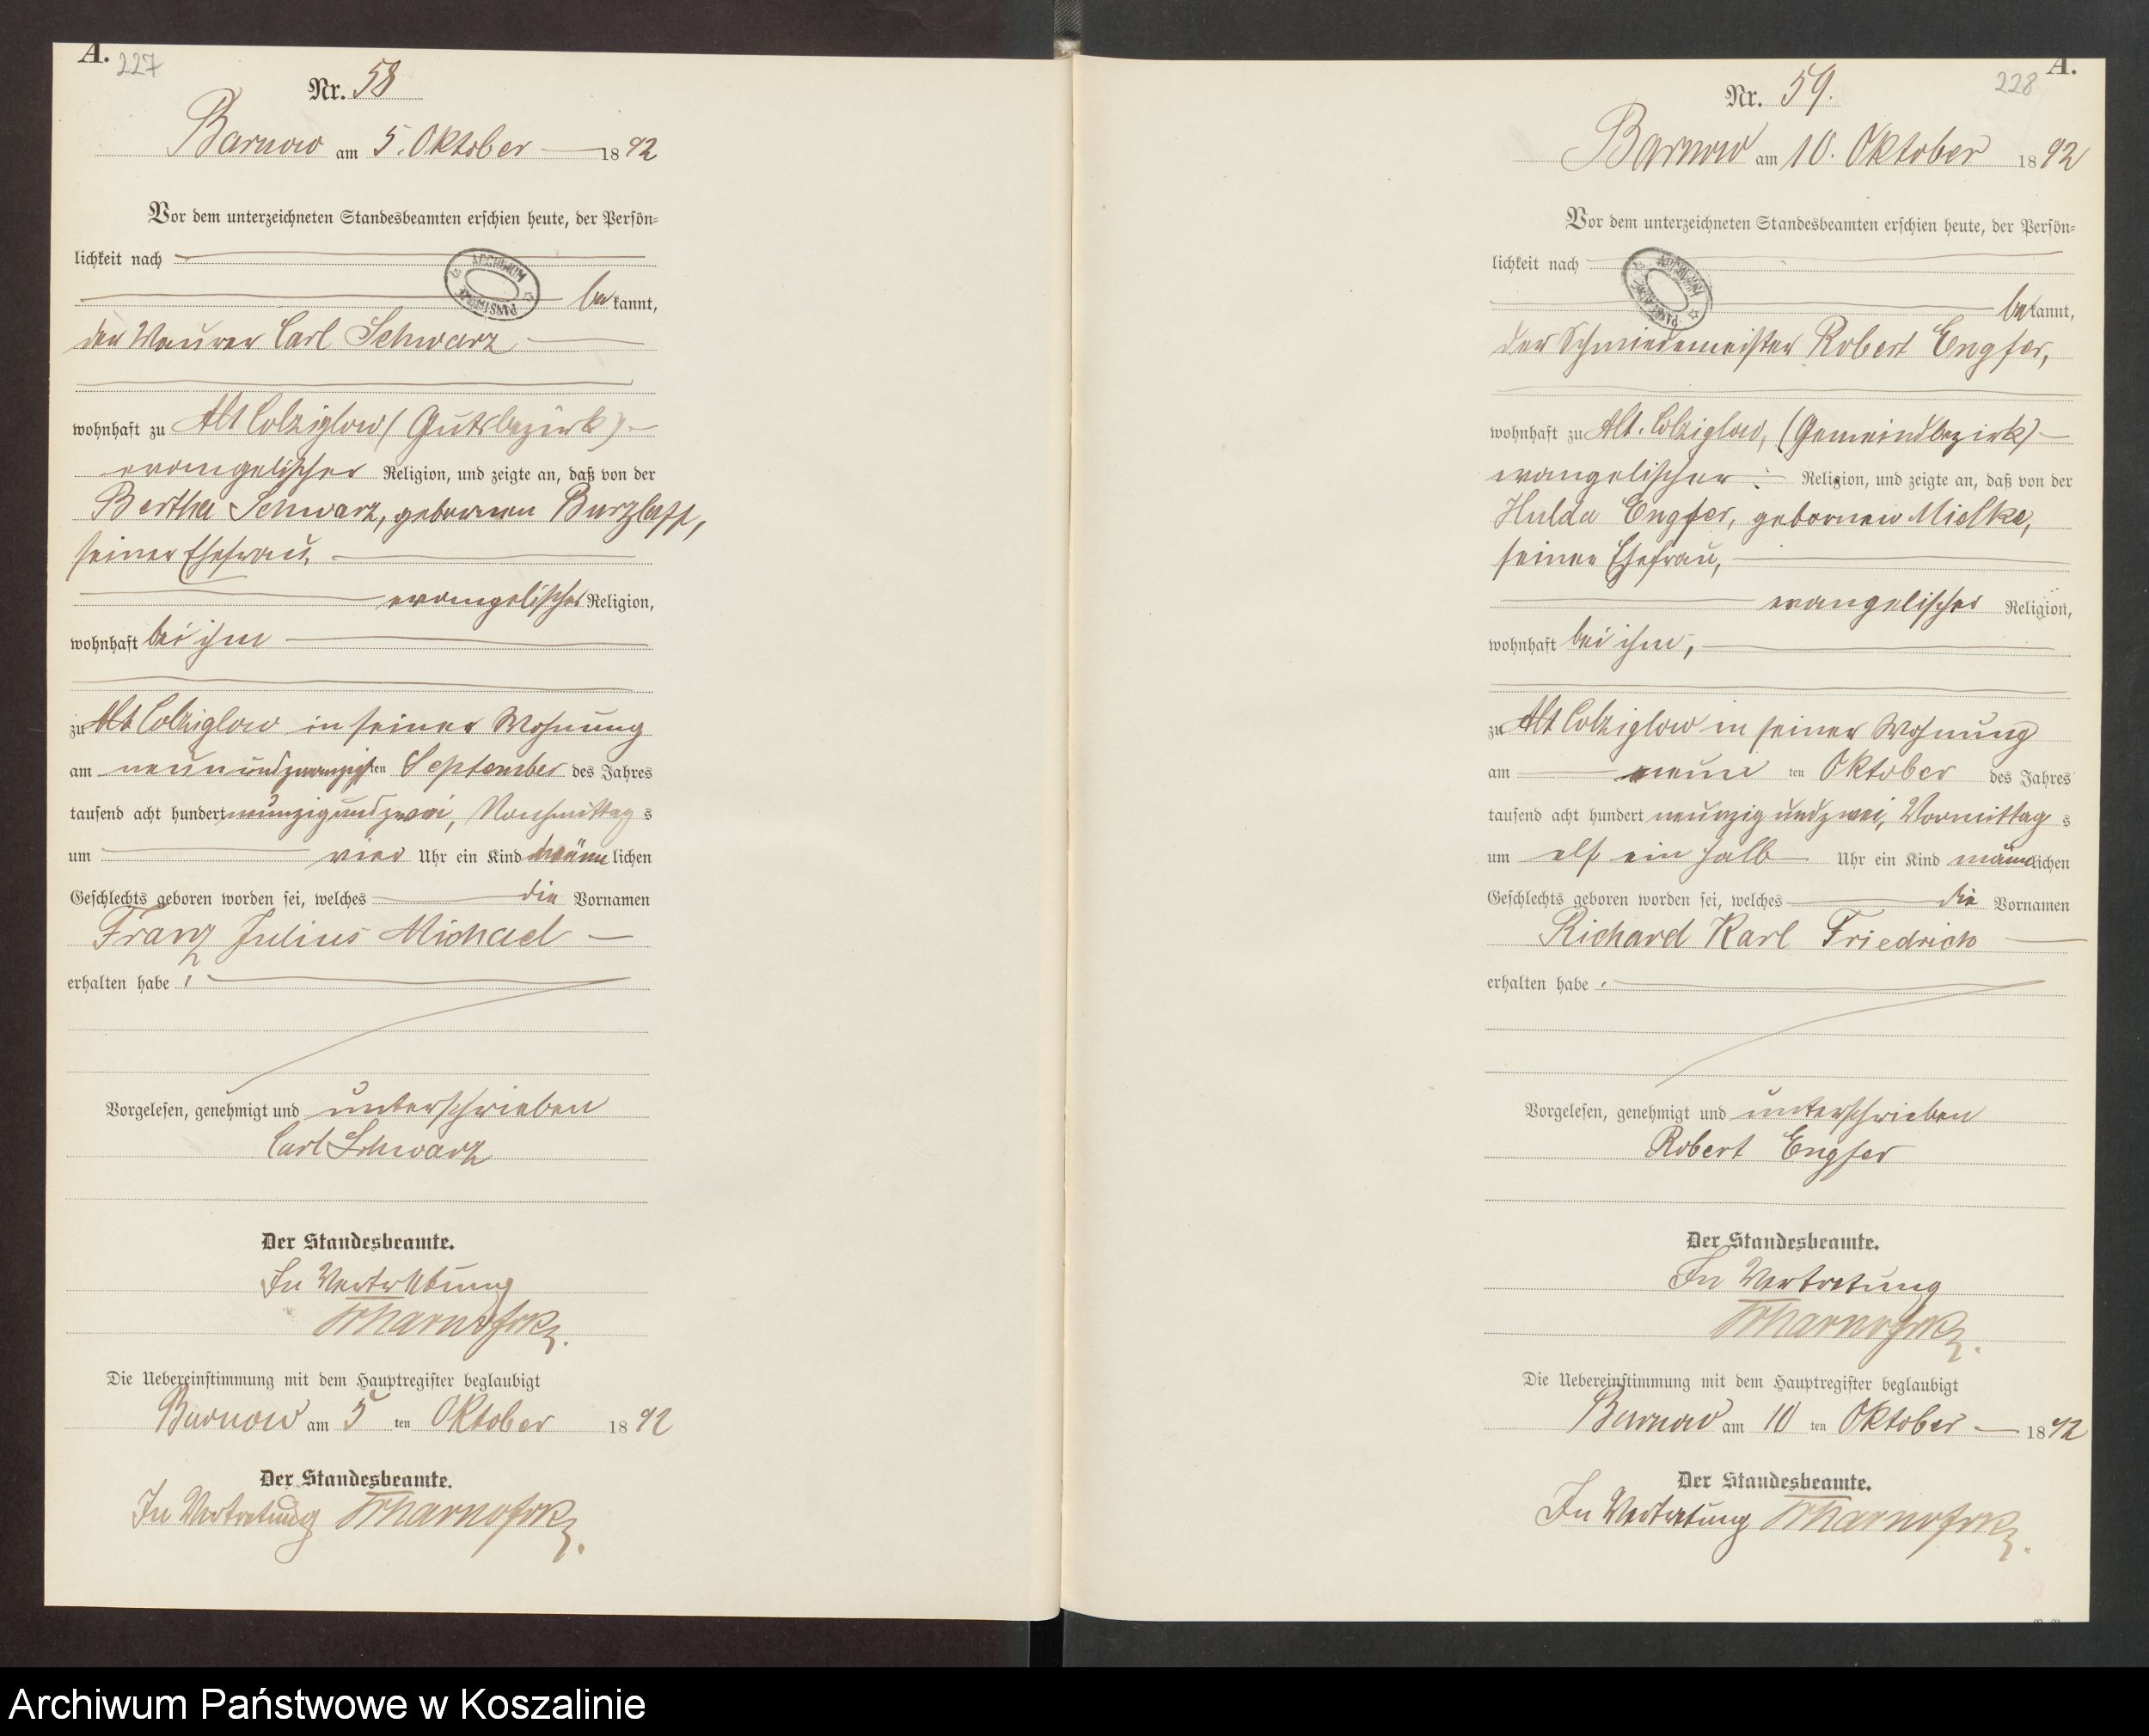 A. 227
Nr. 58
Barnow am 5. Oktober 1892
Vor dem unterzeichneten Standesbeamten erschien heute, der Persön-
lichkeit nach
bekannt,
der Maurer Carl Schwarz
wohnhaft zu Alt Colziglow (Gutsbezirk)
evangelischer Religion, und zeigte an, daß von der
Bertha Schwarz, gebornen Burzlaff,
seiner Ehefrau,
evangelischer Religion,
wohnhaft bei ihm
zu Alt Colziglow in seiner Wohnung
am neunundzwanzigsten September des Jahres
tausend acht hundert neunzig und zwei, Nachmittags
um vier Uhr ein Kind männlichen
Geschlechts geboren worden sei, welches die Vornamen
Franz Julius Michael
erhalten habe.
Vorgelesen, genehmigt und unterschrieben
Carl Schwarz
Der Standesbeamte.
In Vertretung
Die Uebereinstimmung mit dem Hauptregister beglaubigt
Barnow am 5 ten Oktober 1892
Der Standesbeamte.
In Vertretung
A.
228
Nr. 59.
Barnow am 10. Oktober 1892
Vor dem unterzeichneten Standesbeamten erschien heute, der Persön-
lichkeit nach
bekannt,
der Schmiedemeister Robert Engfer,
wohnhaft zu Alt. Colziglow, (Gemeindbezirk)
evangelischer Religion, und zeigte an, daß von der
Hulda Engfer, gebornen Mielke,
seiner Ehefrau,
evangelischer Religion,
wohnhaft bei ihm,
zu Alt Colziglow in seiner Wohnung
am neun ten Oktober des Jahres
tausend acht hundert neunzig und zwei, Vormittags
um elf ein halb Uhr ein Kind männlichen
Geschlechts geboren worden sei, welches die Vornamen
Richard Karl Friedrich
erhalten habe.
Vorgelesen, genehmigt und unterschrieben
Robert Engfer
Der Standesbeamte.
In Vertretung
Die Uebereinstimmung mit dem Hauptregister beglaubigt
Barnow am 10 ten Oktober 1892
Der Standesbeamte.
In Vertretung
Archiwum Państwowe w Koszalinie